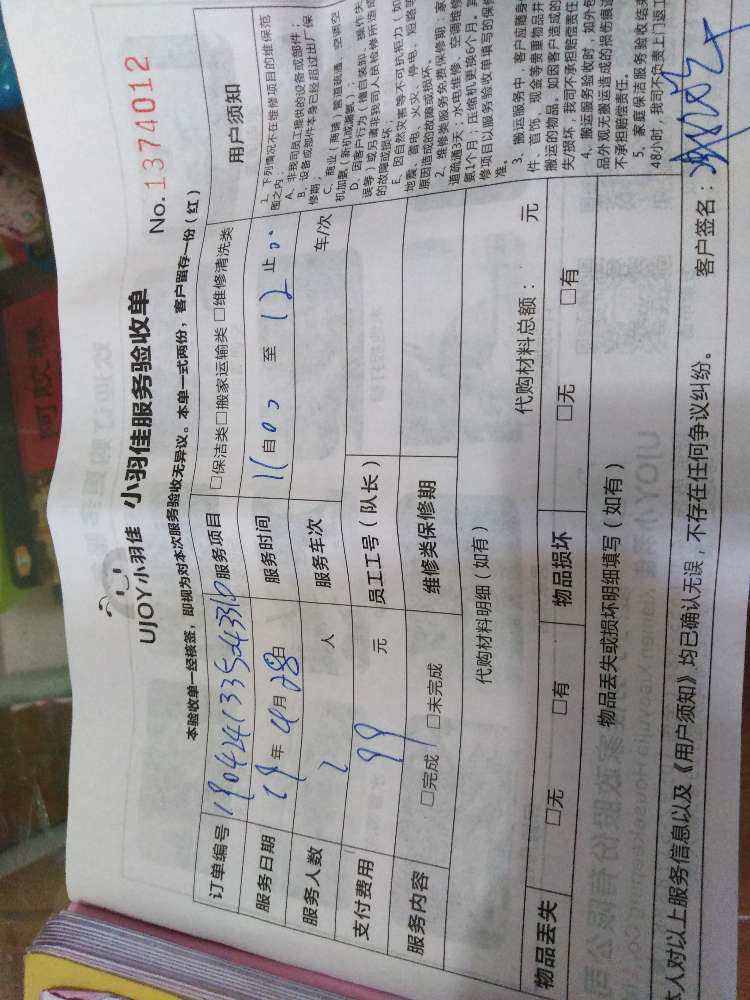 UJOY小羽佳 小羽佳服务验收单
No. 1374012
本验收单一经核签，即视为对本次服务验收无异议。本单一式两份，客户留存一份（红）
订单编号 服务项目 □保洁类□搬家运输类 □维修清洗类
服务日期 19年4月28日 服务时间 自 至 12 止
服务人数 2 人 服务车次 车/次
支付费用 99 元 员工工号（队长）
服务内容 □完成 □未完成 维修类保修期
代购材料明细（如有） 代购材料总额： 元
物品丢失 □无 □有 物品损坏 □无 □有
物品丢失或损坏明细填写（如有）
本人对以上服务信息以及《用户须知》均已确认无误，不存在任何争议纠纷。 客户签名：
用户须知
1、下列情况不在维修项目的维保范
围之内：
A、非我司员工提供的设备或部件；
B、设备或部件本身已经超过出厂保
修期；
C、商业（商铺）管道疏通、空调空
机加氨（新机或漏氨）；
D、因客户行为（擅自装卸、操作失
误等）或另请非我司人员检修所造成
的故障或损坏；
E、因自然灾害等不可抗拒力（如
地震、雷电、火灾、停电、短路等
原因造成的故障或损坏。
2、维修类服务免费保修期：家
道疏通3天；水电维修、空调维修
氨1个月；压缩机更换6个月。其
修项目以服务验收单填写的保修
准。
3、搬运服务中，客户应随身
件、首饰、现金等贵重物品并
搬运的物品。如因客户造成的
失/损坏，我司不承担赔偿责任
4、搬运服务验收时，如外包
品外观无搬运造成的损伤痕迹
不承担赔偿责任。
5、家庭保洁服务验收结束
48小时，我司不负责上门返工